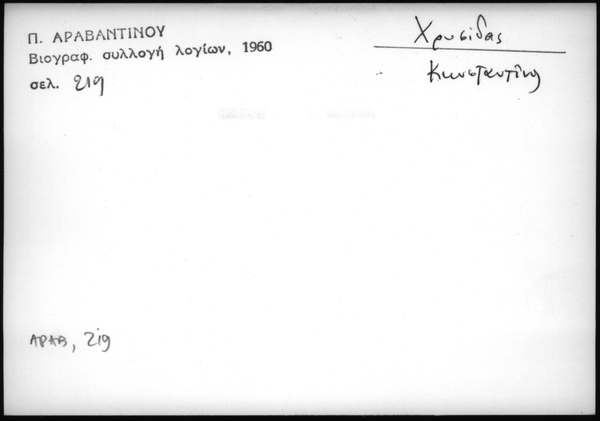 Π. ΑΡΑΒΑΝΤΙΝΟΥ
Βιογραφ. συλλογή λογίων, 1960
σελ. 219
Χρυσίδας
Κωνσταντίνος
ΑΡΑΒ, 219